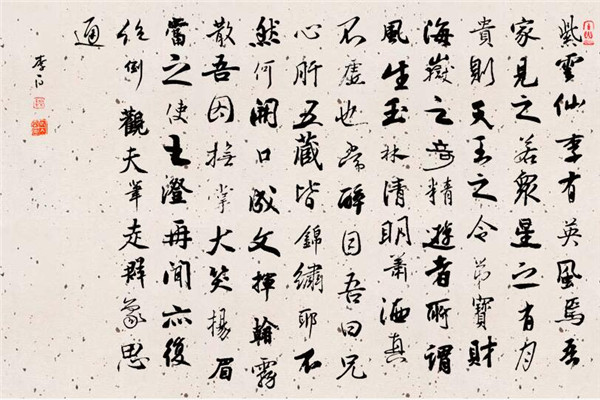 紫雲仙季有英風焉吾
家見之若眾星之有月
貴則天王之令弟寶財
海嶽之奇精遊者所謂
風生玉林清明蕭洒真
不虛也常醉目吾曰兄
心肝五藏皆錦繡耶不
然何開口成文揮翰霧
散吾因撫掌大笑揚眉
當之使王澄再聞亦後
絕倒觀夫筆走群象思
通
李白